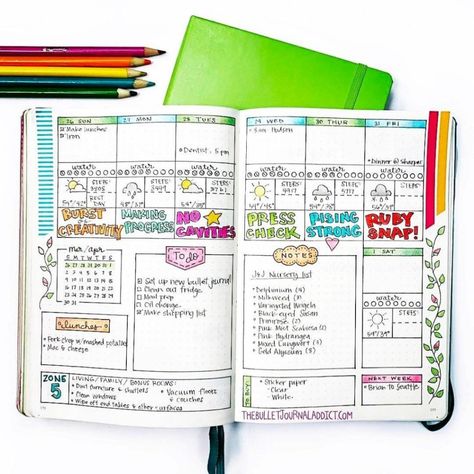 26 SUN
27 MON
28 TUES
Make lunches
Iron
Dentist, 5 pm
water
water
water
STEPS:
STEPS:
STEPS:
BEST DAY
BURST of CREATIVITY
MAKING PROGRESS
NO CAVITIES
mar/apr
S M T W T F S
To do
Set up new bullet journal
Clean out fridge
Meal prep
Oil change
Make shipping list
lunches
Pork chop w/mashed potatoes
Mac & cheese
ZONE 5
LIVING/FAMILY/BONUS ROOMS:
Dust furniture & shutters
Clean windows
Wipe off end tables & other surfaces
Vacuum floors & couches
29 WED
30 THUR
31 FRI
Sam Hudson
Dinner @
water
water
water
STEPS:
STEPS:
STEPS:
PRESS CHECK
RISING STRONG
RUBY SNAP!
NOTES
J&J Nursery list
Delphinium (4)
Milkweed
Variegated
Black-eyed Susan
Primrose
Pink Mist Scabiosa
Pink Hydrangea
Gold Alyssum
1 SAT
water
STEPS:
TO BUY:
Sticker paper
- Clear
- White
NEXT WEEK
Brian to Seattle
THEBULLETJOURNALADDICT.COM